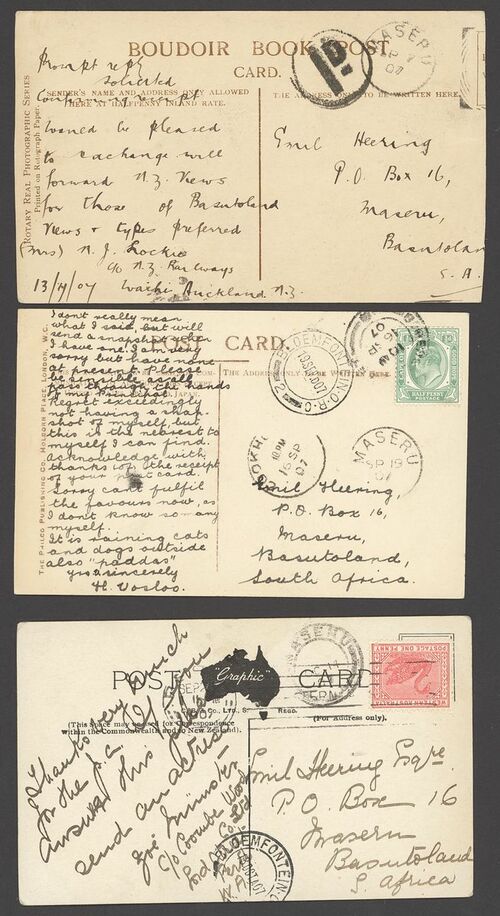 BOUDOIR BOOK POST.
CARD.
SENDER'S NAME AND ADDRESS ONLY ALLOWED
HERE AT HALFPENNY INLAND RATE.
THE ADDRESS ONLY TO BE WRITTEN HERE.
ROTARY REAL PHOTOGRAPHIC SERIES
Printed on Rotograph Paper.
MASERU
07
Prompt reply
solicited
would be pleased
to exchange will
forward N.Z. Views
for those of Basutoland
Views & types preferred
(Mrs) N. J. Lockie
c/o N.Z. Railways
Waihi Auckland N.Z.
Emil Heering
P.O. Box 16,
Maseru,
Basutolan
S. A.
POST CARD.
THE ADDRESS ONLY TO BE WRITTEN HERE
THE PHILCO PUBLISHING CO. HOLBORN PLACE, LONDON, W.C.
I dont really mean
what I said, but will
send a snapshot when
I have one. I am very
sorry but I have none
at present. Please
pass through the hands
of my Principal.
Regret exceedingly
not having a snap-
shot of myself but
this is the nearest to
myself I can find.
Acknowledge with
thanks the receipt
of your card.
Sorry cant fulfil
the favours now, as
I dont know so many
myself.
It is raining cats
and dogs outside
also "paddas"
yrs sincerely
H. Vosloo.
BLOEMFONTEIN.O.R.C.
HALF PENNY
10 PM
16 SP
07
MASERU
SP 19
07
Emil Heering,
P.O. Box 16,
Maseru,
Basutoland,
South Africa.
POST "Graphic" CARD
(This Space may be used for Correspondence
within the Commonwealth and to New Zealand).
(For Address only).
MASERU
POSTAGE ONE PENNY
Thanks very much
for the p.c. Let you
answer this
send an actress
c/o Coombe Wood
BLOEMFONTEIN
Emil Heering Esqre.
P.O. Box 16
Maseru
Basutoland
S Africa